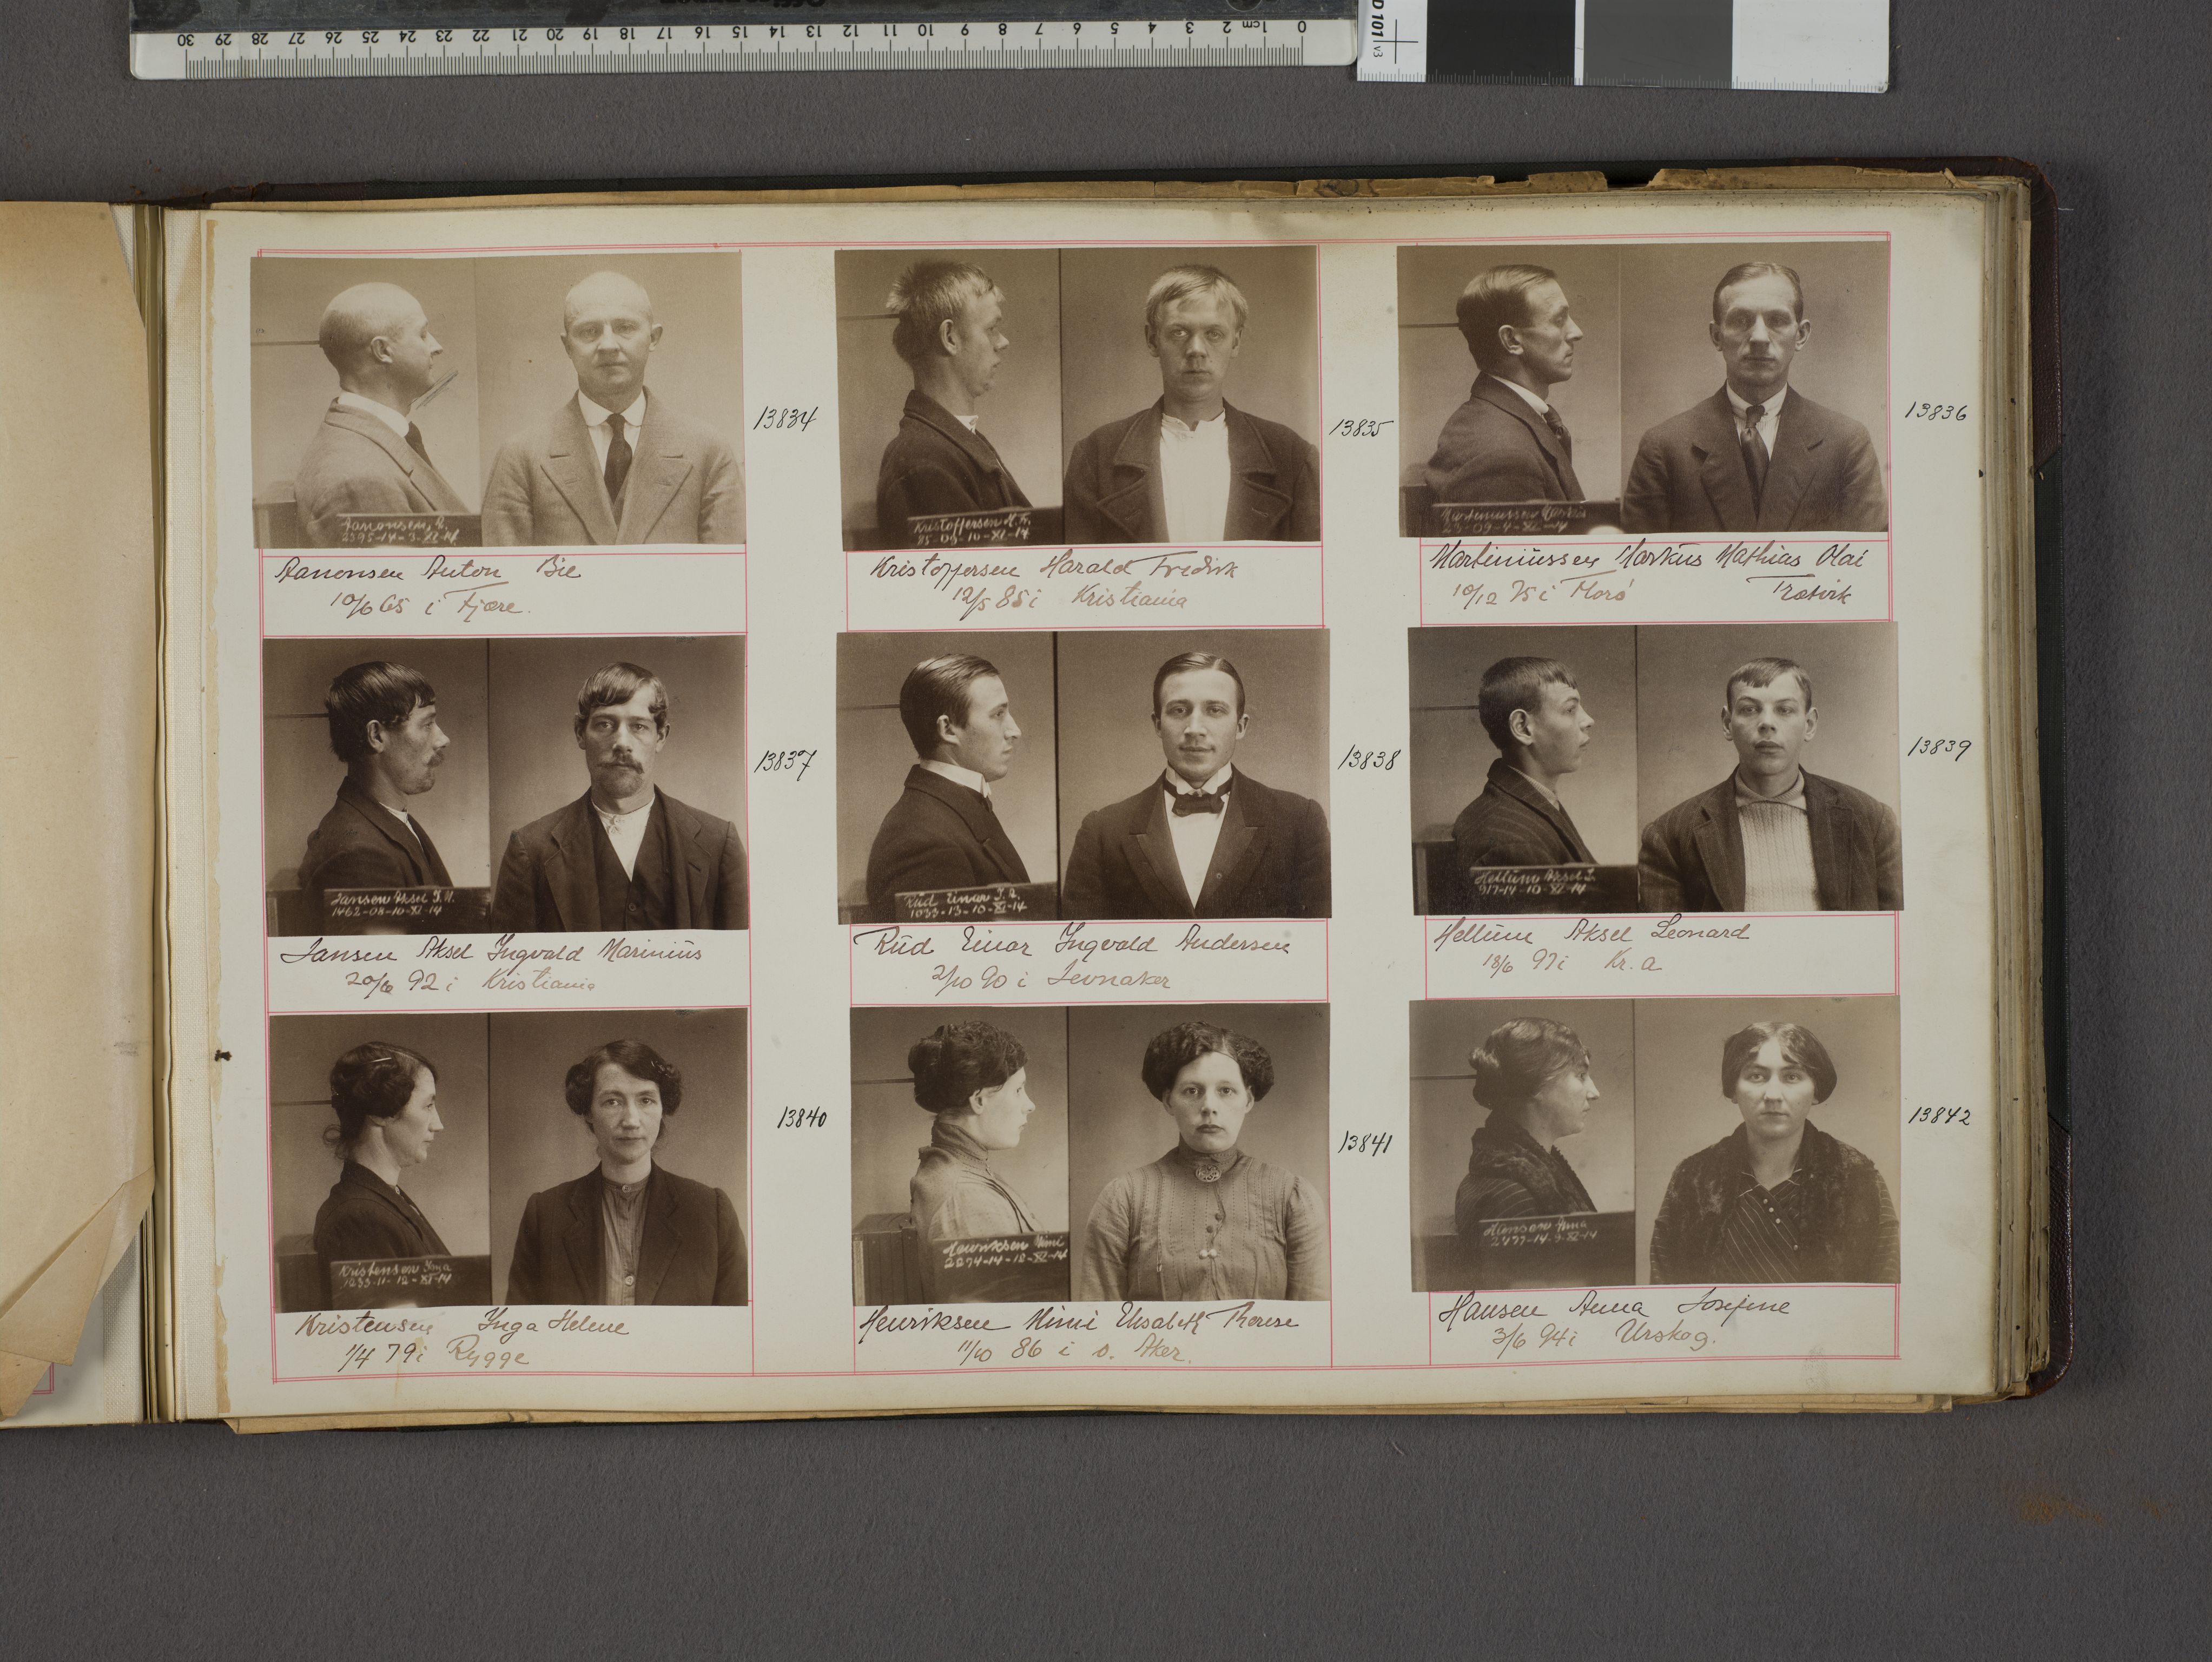 30 29 28 27 26 25 24 23 22 21 20 19 18 17 16 15 14 13 12 11 10 9 8 7 6 5 4 3 2 1cm 0
D 101 v3
Aanonsen, A.
2395-14-9-XI-14
13834
Aanonsen Anton Bie
10/6 65 i Fjære.
Kristoffersen H. Fr.
85-09-10-XI-14
13835
Kristoffersen Harald Fredrik
12/5 85 i Kristiania
Martiniussen Markus
23-09-9-XI-14
13836
Martiniussen Markus Mathias Olai
10/12 75 i Florö Træsvik
Jansen Aksel I. M.
1462-08-10-XI-14
13837
Jansen Aksel Ingvald Marinius
20/6 92 i Kristiania
Rud Einar I. A.
1033-13-10-XI-14
13838
Rud Einar Ingvald Andersen
2/10 90 i Jevnaker
Hellum Aksel L.
917-14-10-XI-14
13839
Hellum Aksel Leonard
18/6 97 i Kr. a
Kristensen Inga
1233-11-12-XI-14
13840
Kristensen Inga Helene
1/4 79 i Rygge
Henriksen Mimi
2274-14-12-XI-14
13841
Henriksen Mimi Elisabeth Therese
11/10 86 i ø. Aker.
Hansen Anna
2477-14-9-XI-14
13842
Hansen Anna Josefine
3/6 94 i Urskog.